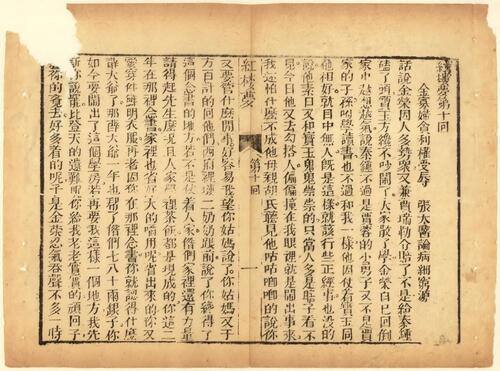 紅樓夢第十回
金寡婦貪利權受辱　張太醫論病細窮源
話說金榮因人多勢衆又兼賈瑞勒令賠了不是給秦鍾
磕了頭寶玉方纔不吵鬧了大家散了學金榮自已回到
家中越想越氣說秦鍾不過是賈蓉的小舅子又不是賈
家的子孫附學讀書也不過和我一樣他因仗着寶玉同
他相好就目中無人旣是這樣就該行些正經事也没的
說他素日又和寶玉鬼鬼祟祟的只當人多是瞎子看不
見今日他又去勾搭人偏偏撞在我眼裡就是鬧出事來
我還怕什麽不成他母親胡氏聽見他咕咕唧唧的說你
紅樓夢　第十回　一
又要管什麽閒事好容易我望你姑媽說了你姑媽又千
方百計的向他們西府裡璉二奶奶跟前說了你纔得了
這個念書的地方若不是仗着人家偺們家裡還有力量
請得起先生麽況且人家學裡茶飯都是現成的你這二
年在那裡念書家裡也省好大的嚼用呢省出來的你又
愛穿件鮮明衣服再者因你在那裡念書你就認得什麽
薛大爺了那薛大爺一年也帮了偺們七八十兩銀子你
如今要鬧出了這個學房若再要找這樣一個地方我先
你說罷比登天的還難哩你給我老老實實的頑回子
你的覺去好多着的呢于是金榮忍氣吞聲不多一時